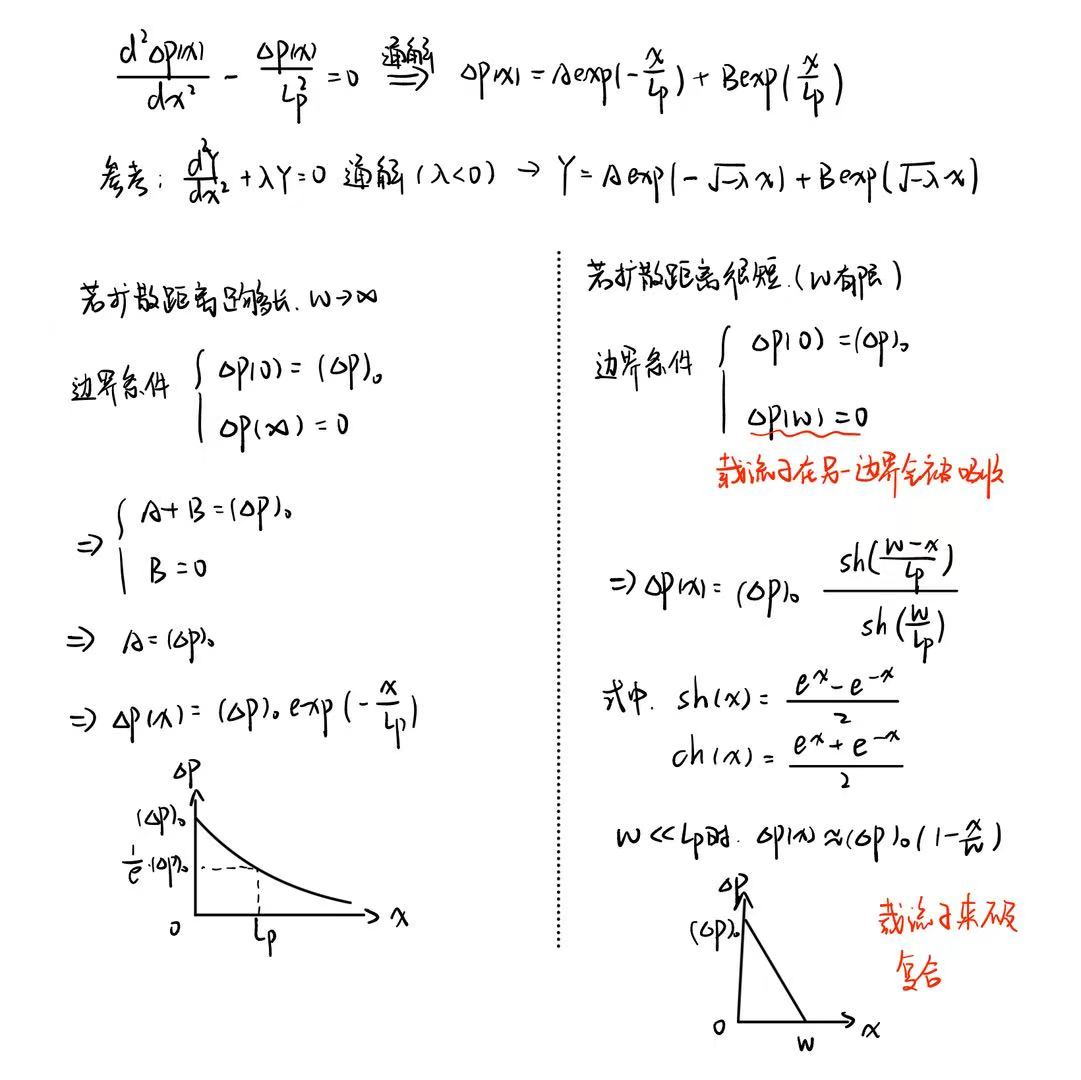 d²Δp(x)/dx² - Δp(x)/Lp² = 0 通解⇒ Δp(x) = A exp(-x/Lp) + B exp(x/Lp)
参考: d²Y/dx² + λY = 0 通解 (λ<0) → Y = A exp(-√-λ x) + B exp(√-λ x)
若扩散距离足够长. W→∞
边界条件 { Δp(0) = (Δp)₀
Δp(∞) = 0
⇒ { A + B = (Δp)₀
B = 0
⇒ A = (Δp)₀
⇒ Δp(x) = (Δp)₀ exp(-x/Lp)
Δp
(Δp)₀
1/e·(Δp)₀
0 Lp x
若扩散距离很短. (W有限)
边界条件 { Δp(0) = (Δp)₀
Δp(W) = 0
载流子在另一边界全被吸收
⇒ Δp(x) = (Δp)₀ sh((W-x)/Lp) / sh(W/Lp)
式中. sh(x) = (eˣ - e⁻ˣ)/2
ch(x) = (eˣ + e⁻ˣ)/2
W ≪ Lp时. Δp(x) ≈ (Δp)₀ (1 - x/W)
Δp
(Δp)₀
0 W x
载流子来不及
复合